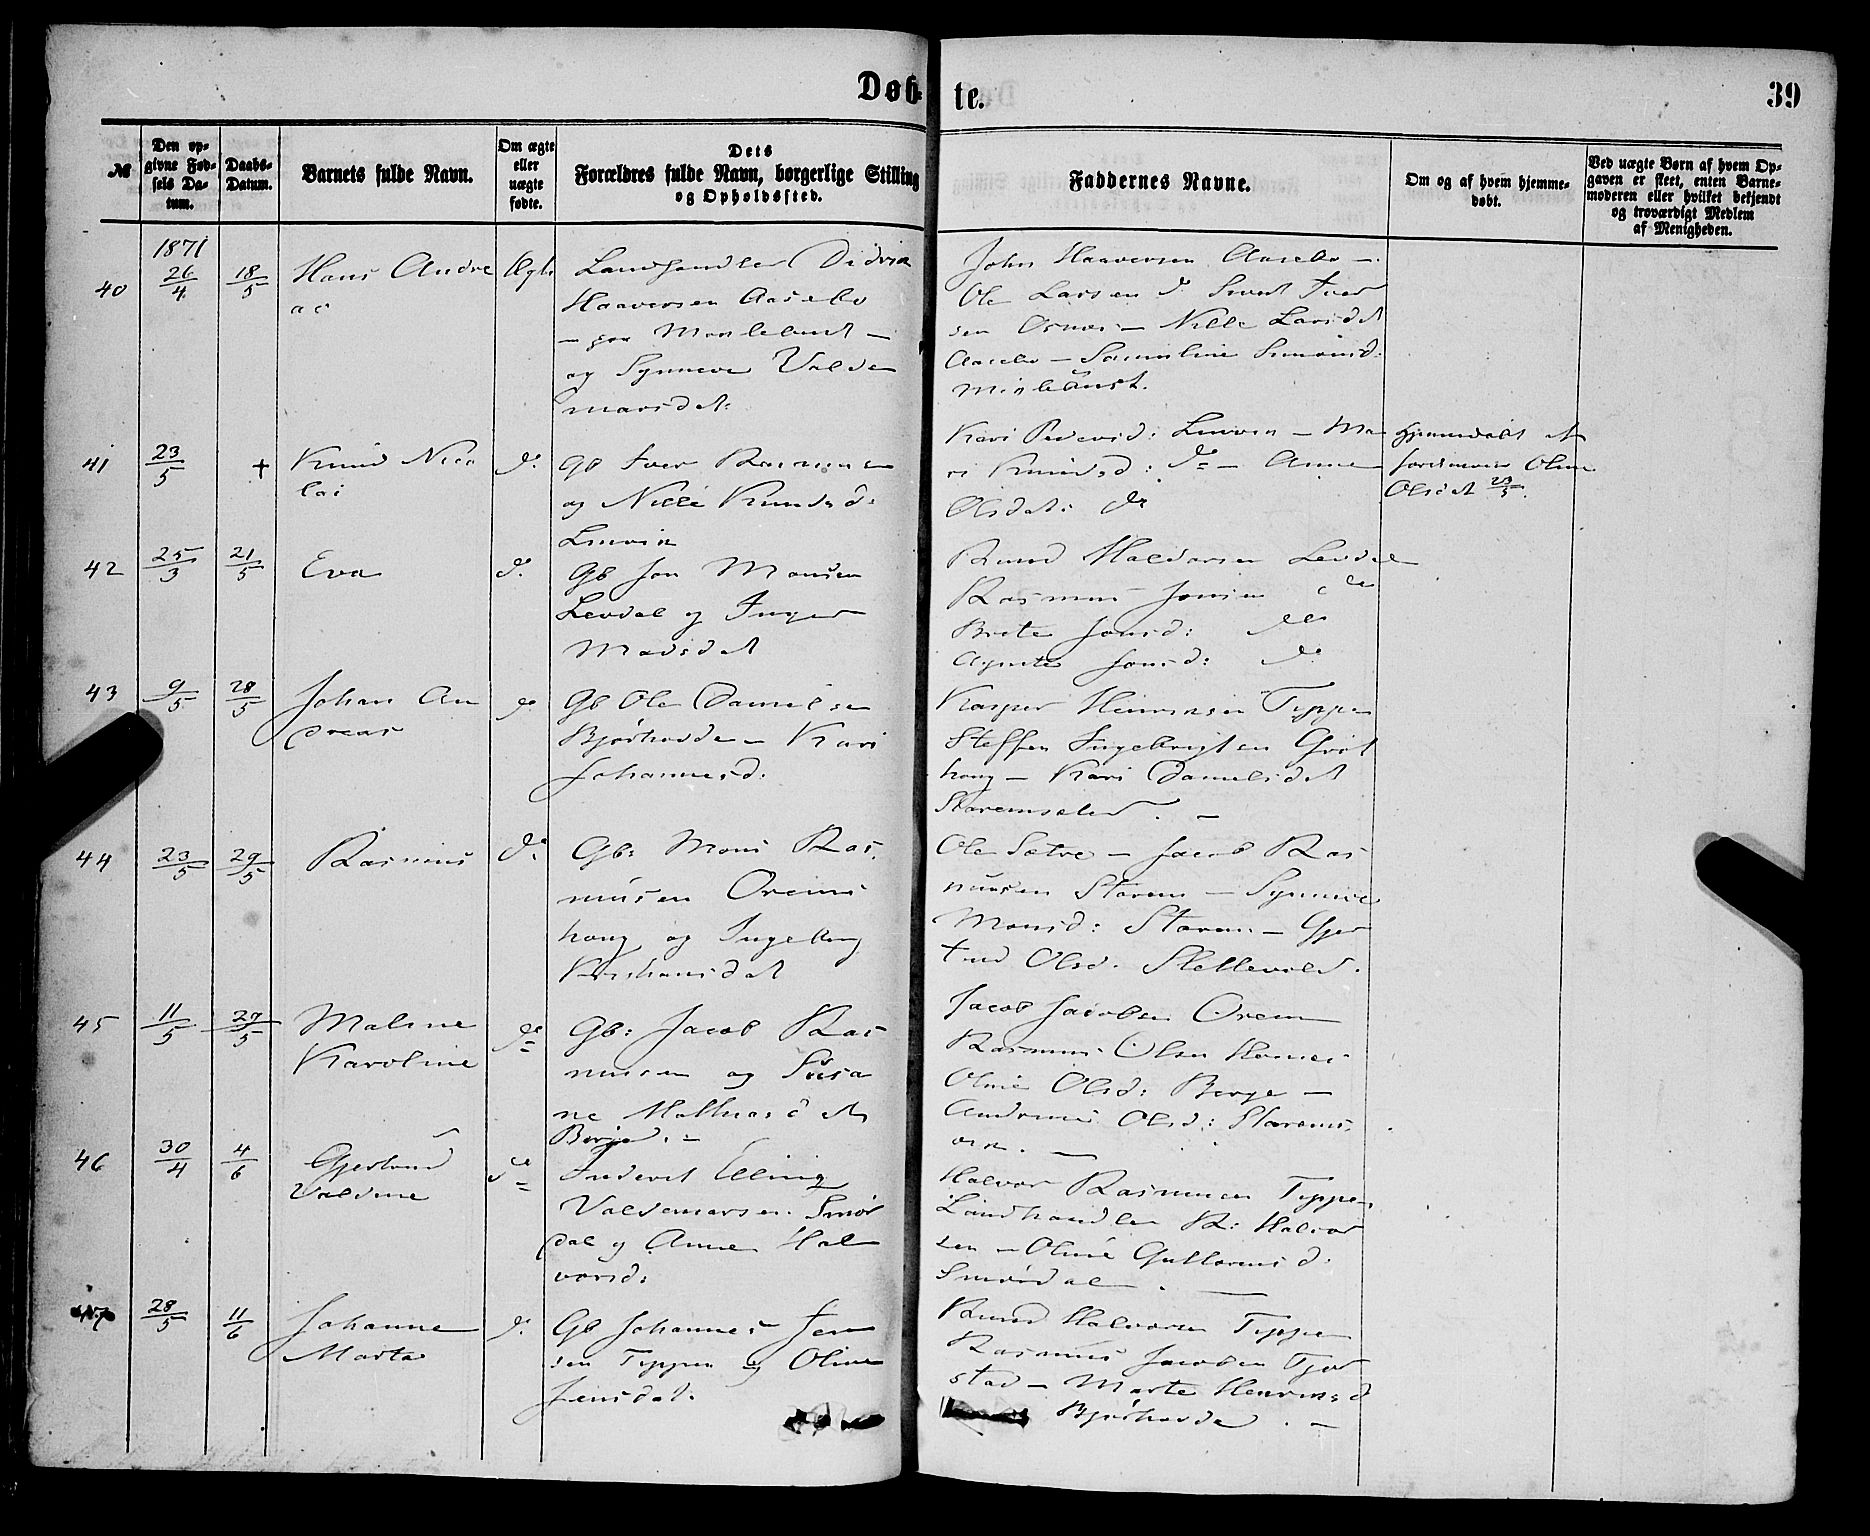 Døb-
te.
39
№
Den op-
givne Fød-
sels Da-
tum.
Daabs-
Datum.
Barnets fulde Navn.
Om ægte
eller
uægte
fødte.
Dets
Forældres fulde Navn, borgerlige Stilling
og Opholdssted.
Faddernes Navne.
Om og af hvem hjemme-
døbt.
Ved uægte Børn af hvem Op-
gaven er skeet, enten Barne-
moderen eller hvilket bekjendt
og troværdigt Medlem
af Menigheden.
1871
40
26/4
18/5
Hans Andre
as
Ægte
Landhandler Didrik
Haaversen Aasebø
og Synneve Valde
marsdat:
John Haaversen Aasebø –
Ole Larsen do Sivert Iver
sen Osnes – Nille Larsdat
Aasebø –
41
23/5
+
Knud Nico
lai
do.
Gb Iver Rasmusen
og Nille Knudsd:
Kari Pedersd: – Ma
ri Knudsd: do – Anne
Olsdat: do
Hjemmedøbt af
Jordmoder Oline
Olsdat 23/5.
42
25/3
21/5
Eva
do.
Gb Jon Monsen
Levdal og Inger
Madsdat
Knud Haldorsen Levdal
Rasmus Jonsen do
Brite Jonsd: do
Agnete Jonsd: do
43
9/5
28/5
Johan An
dreas
do
Gb Ole Danielsen
Bjørhovde – Kari
Johannesd.
Kasper Henriksen Tippen
Steffen Ingebrigtsen Grøt
houg – Kari Danielsdat
44
23/5
29/5
Rasmus
do.
Gb: Mons Ras
musen Orems
houg og Ingeborg
Kristiansdat
Ole Sætre – Jacob Ras
musen Starem – Synneve
Monsd: Starem – Gjer
trud Olsd.
45
11/5
29/5
Maline
Karoline
do
Gb: Jacob Ras
musen og Susa
ne Mathiasdat
Berge. –
Jacob Jacobsen Orem
Rasmus Olsen
Oline Olsd: Berge –
46
30/4
4/6
Gjertrud
Valdine
do
Inderst Elling
Valdemarsen Smør
dal og Anne Hal
vorsd:
Halvor Rasmusen Tippen
Landhandler R: Halvor
sen – Oline Guttormsd:
Smørdal. –
47
28/5
11/6
Johanne
Marta
do.
Gb Johannes Jen
sen Tippen og Oline
Jensdat.
Knud Halvorsen Tippen
Rasmus Jacobsen
stad – Marte Henriksd
Bjørhovde. –